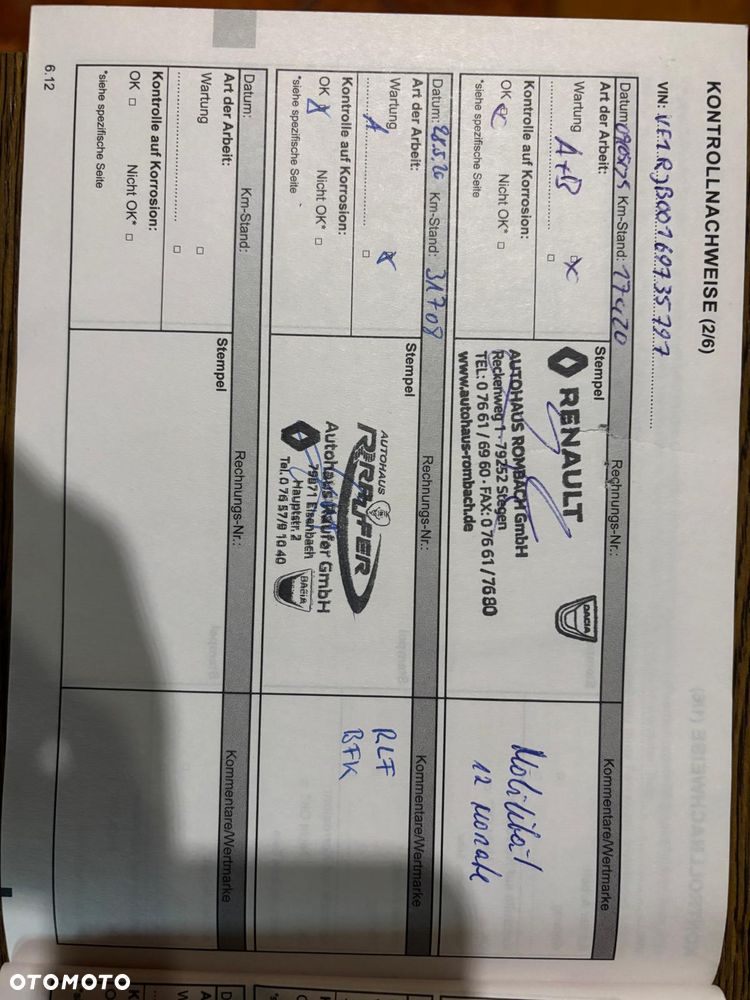 KONTROLLNACHWEISE (2/6)
VIN: VF1RJB00169735797
Datum: Km-Stand: 17420 Rechnungs-Nr.: Kommentare/Wertmarke
Art der Arbeit:
Wartung
A+B
Kontrolle auf Korrosion:
OK Nicht OK*
*siehe spezifische Seite
Stempel
RENAULT
DACIA
AUTOHAUS ROMBACH GmbH
Reckenweg 1 - 79252 Stegen
TEL: 0 76 61 / 69 60 - FAX: 0 76 61 / 76 80
www.autohaus-rombach.de
Mobilität
12 Monate
Datum: 28.5.20 Km-Stand: 31708 Rechnungs-Nr.: Kommentare/Wertmarke
Art der Arbeit:
Wartung
A
Kontrolle auf Korrosion:
OK Nicht OK*
*siehe spezifische Seite
Stempel
AUTOHAUS
Autohaus Raufer GmbH
79871 Eisenbach
Hauptstr. 2
Tel. 0 76 57/9 10 40
DACIA
RLF
BFK
Datum: Km-Stand: Rechnungs-Nr.: Kommentare/Wertmarke
Art der Arbeit:
Wartung
Kontrolle auf Korrosion:
OK Nicht OK*
*siehe spezifische Seite
Stempel
6.12
OTOMOTO